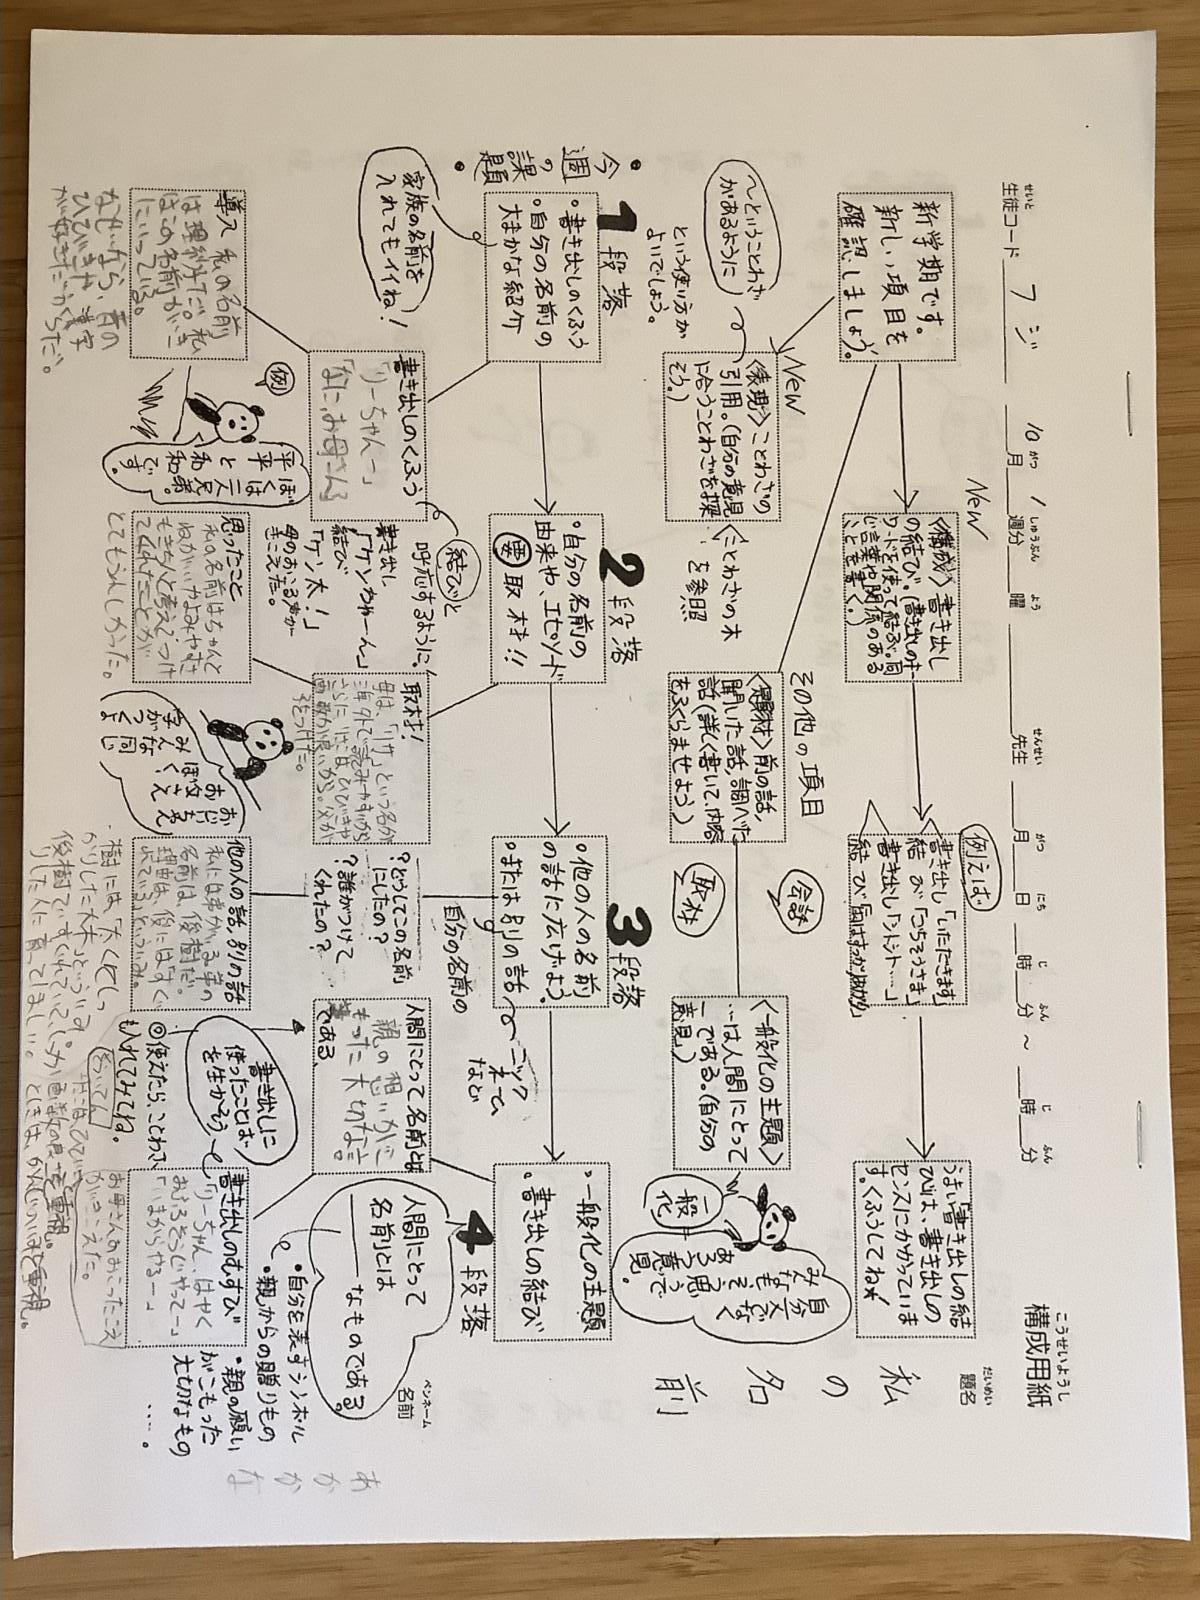 構成用紙
こうせいようし
生徒コード フジ 10月 1週分 曜 先生 月 日 時 分 ～ 時 分
題名
だいめい
私の名前
ペンネーム
名前
あかかな
新学期です。
新しい項目を
確認しましょう。
New
〈構成〉書き出し
の結び。(書き出しのキー
ワードを使って結ぶ。同
じ言葉や関係のある
ことを書く。)
例えば
書き出し「いただきます」
結び「ごちそうさま」
書き出し「シトシト…」
結び
うまい「書き出しの結
び」は、書き出しの
センスにかかっていま
す。くふうしてね！
New
〈表現〉ことわざの
引用。(自分の意見
に合うことわざを探
そう。)
〜ということわざ
があるように
という使い方が
よいでしょう。
〈ことわざの木
を参照
その他の項目
〈題材〉前の話、
聞いた話、調べた
話(詳しく書いて、内容
をふくらませよう)
会話
取材
〈一般化の主題〉
…は人間にとって
―である。(自分の
意見)
一般化
自分だけでなく
みんなもそう思う
であろう意見。
・今週の課題・
1段落
・書き出しのくふう
・自分の名前の
大まかな紹介
家族の名前を
入れてもイイね！
2段落
・自分の名前の
由来や、エピソード
要取材!!
3段落
・他の人の名前
の話に広げよう。
・または別の話
ニックネーム
など
4段落
・一般化の主題
・書き出しの結び
書き出しのくふう
「りーちゃんー」
「なに、お母さん」
結びと
呼応するように！
書き出し
「ケンちゃーん」
結び
「ケン太！」
母のおこる声が
きこえた。
取材！
母は、「リサ」という名が
海外で読みやすいから
さらに「はこはひびきや
画数が良いから。父が
字をつけた。
自分の名前の
?どうしてこの名前
にしたの？
?誰がつけて
くれたの？
人間にとって名前とは
親の想いがこ
もった大切な一
である。
人間にとって
名前とは
―なものである。
・自分を表すシンボル
・親からの贈りもの
・親の願い
がこもった
大切なもの
‥‥。
導入 私の名前
は理紗子だ。私
はこの名前が気
に入っている。
なぜなら、音の
ひびきや、漢字
が好きだからだ。
例
ぼくは兄弟
と二人
です。
思ったこと
私の名前はちゃんと
ねがいやよみやすさ
もきちんと考えてつけ
てくれたことが
とてもうれしかった。
おじいちゃん、
おさえ、
ぼく、
みんな同じ
字がつくよ
他の人の話、別の話
私には弟がいる。弟の
名前は俊樹だ。
理由は、俊には「すぐ
れている」といういみ。
・樹には、「太くてしっ
かりした大木」といういみ
俊樹で「すぐれていて、しっか
りした人に育ってほしい。
書き出しに
使ったことば
を生かそう
◎使えたら、ことわざ
も入れてみてね。
書き出しのむすび
「りーちゃん、はやく
おふろそうじやってー」
「いまからやるー」
お母さんのおこったこえ
がきこえた。